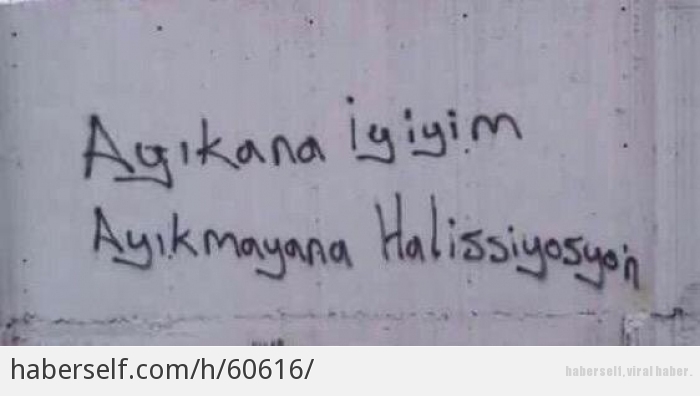 Ayıkana iyiyim
Ayıkmayana Halissiyosyon
haberself.com/h/60616/
haberself, viral haber.